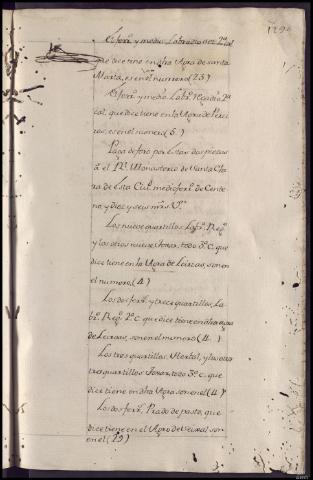 El ferº. y medio, Labradio nez. 2ª cal.
que dice tiene en dha Agra de santa
Marta, es en el numero (23)
El ferº. y medio Labº. Regadio 2ª
cal. que dice tiene en la Agra de
es en el numero (6.)
Paga de foro por estas dos piezas
á el Rl. Monasterio de Santa Cla
ra de esta Ciud. medio ferº. de Cente
no, y diez y seis mrs. Vn.
Los nueve quartillos Labº. Regº.
y los otros nueve Toxar, todo 3ª. c. que
dice tiene en la Agra de Leiras, son en
el numero (4)
Los dos ferº. y trece quartillos, La
bº. Regº. 2ª c. que dice tiene en dha agra
de Leiras, son en el numero (4.)
Los tres quartillos Hortal, y los otros
tres quartillos Toxar, todo 3ª c. que
dice tiene en dha Agra son en el (4.)
Los dos ferº. Prado de pasto, que
dice tiene en el Agro del Seixal son
en el (29)